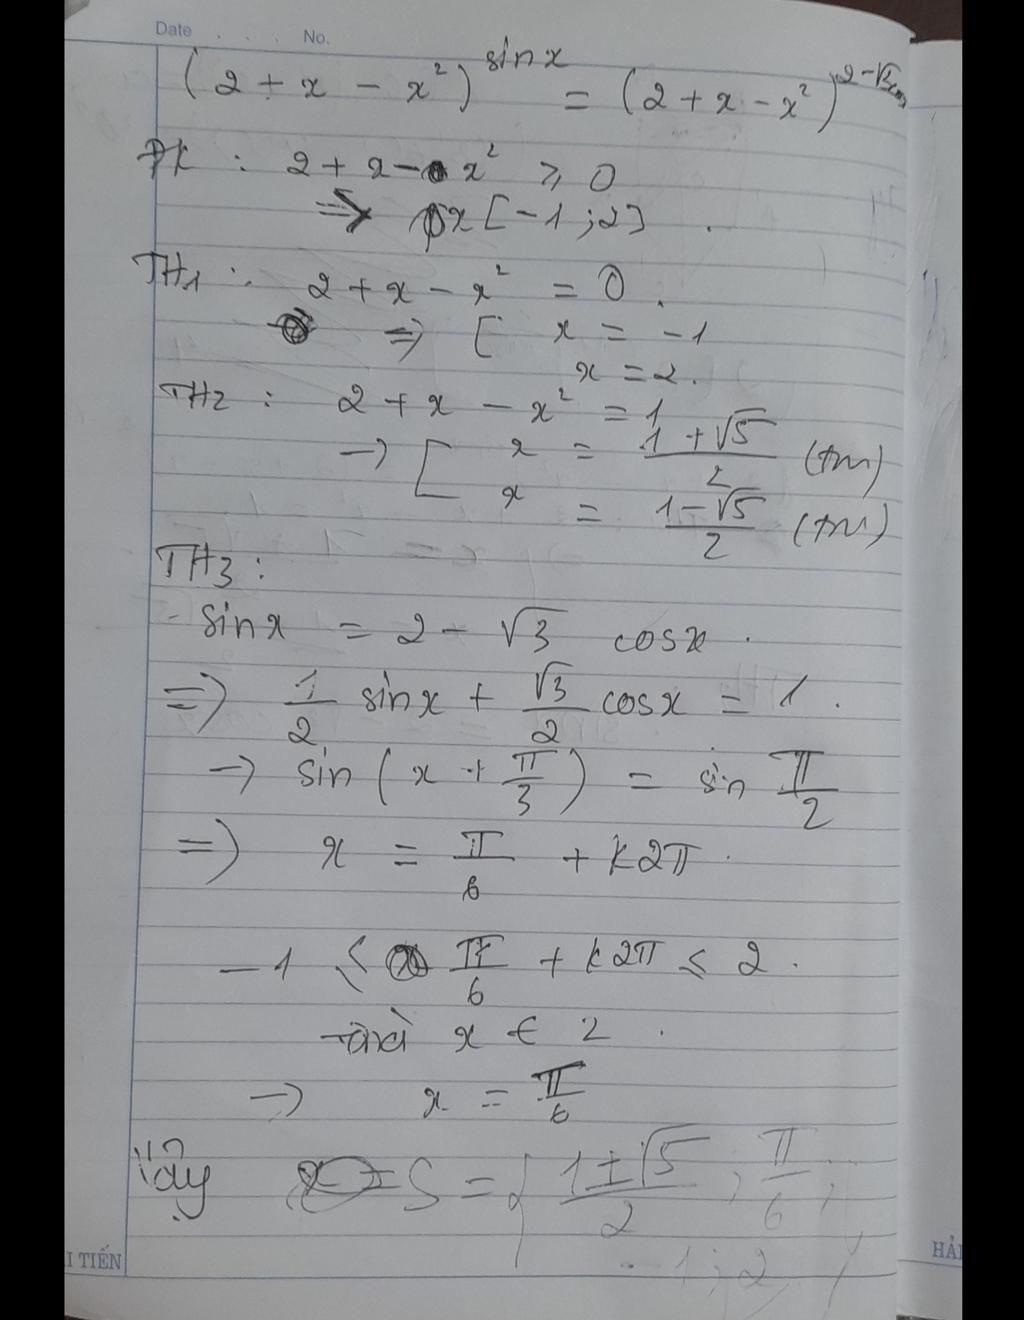 Date . . . No.
(2 + x - x²)^sinx = (2 + x - x²)^2-√3cosx
ĐK : 2 + x - x² ⩾ 0
=> x [-1 ; 2] .
TH1 : 2 + x - x² = 0 .
=> [ x = -1
x = 2 .
TH2 : 2 + x - x² = 1
-> [ x = (1 + √5)/2 (tm)
x = (1 - √5)/2 (tm)
TH3 :
- sinx = 2 - √3 cosx .
=> 1/2 sinx + √3/2 cosx = 1 .
-> sin (x + π/3) = sin π/2
=> x = π/6 + k2π .
-1 ⩽ π/6 + k2π ⩽ 2 .
mà x ∈ Z .
-> x = π/6
Vậy S = { (1±√5)/2 ; π/6 ;
-1 ; 2 }
I TIẾN
HẢI